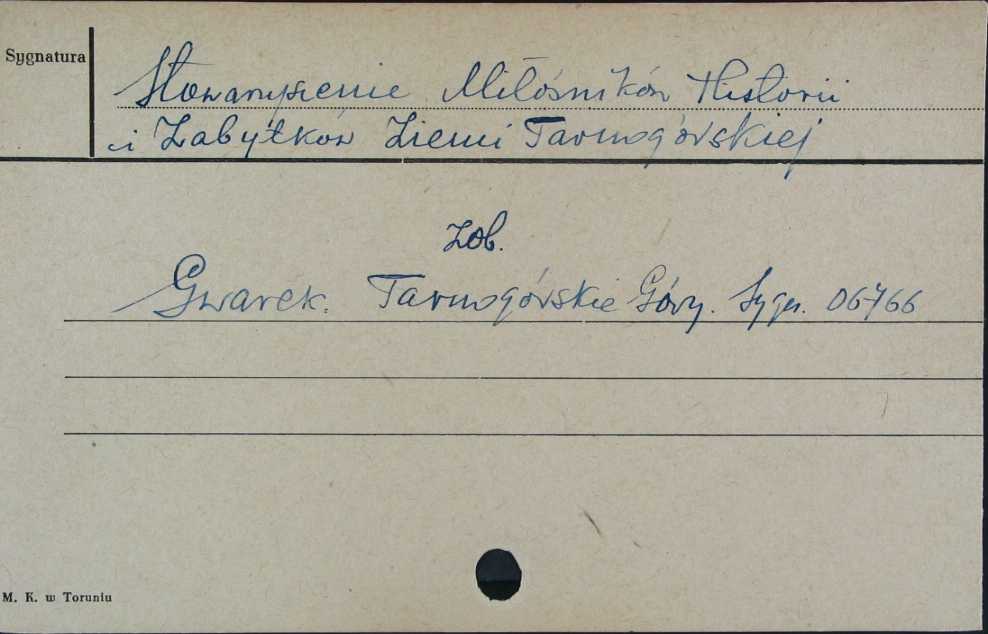 Sygnatura
Stowarzyszenie Miłośników Historii
i Zabytków Ziemi Tarnogórskiej
zob.
Gwarek. Tarnogórskie Góry. Sygn. 06766
M. K. w Toruniu